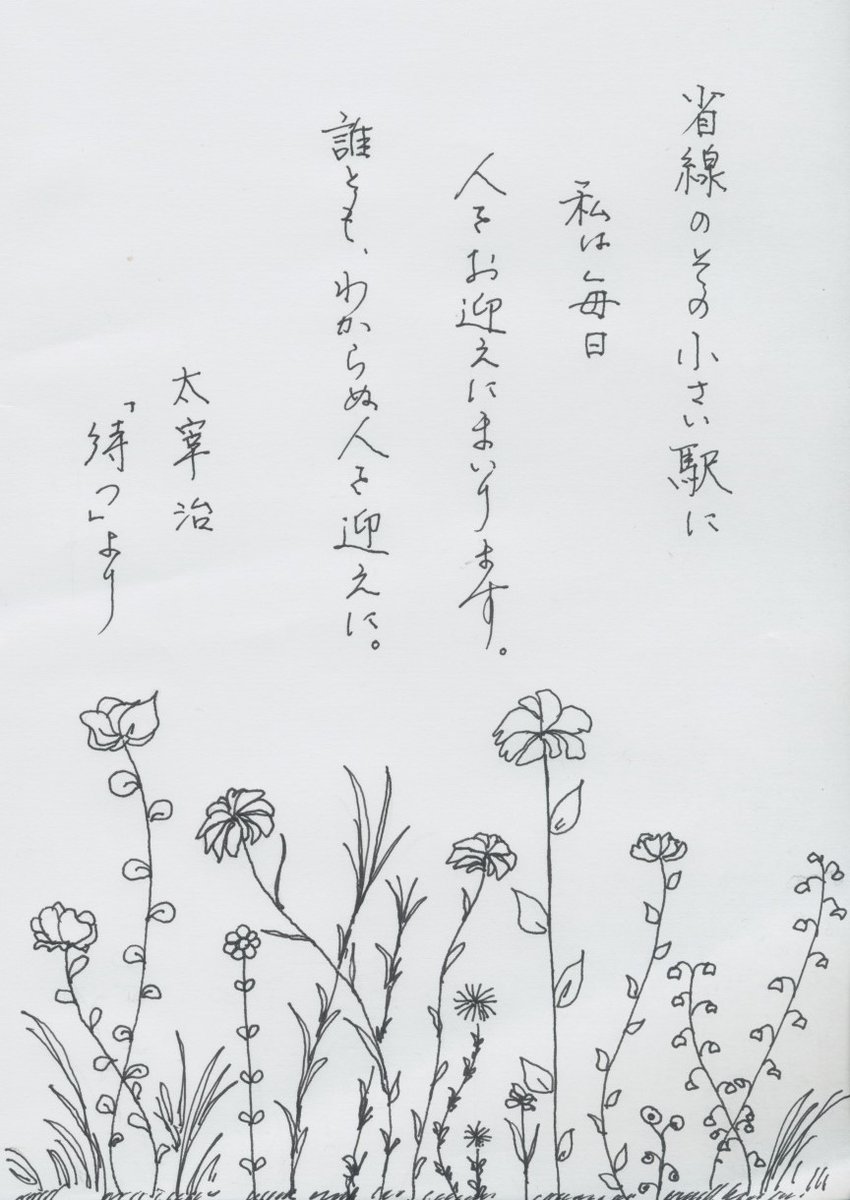 省線のその小さい駅に
私は毎日
人をお迎えにまいります。
誰とも、わからぬ人を迎えに。
太宰治
「待つ」より